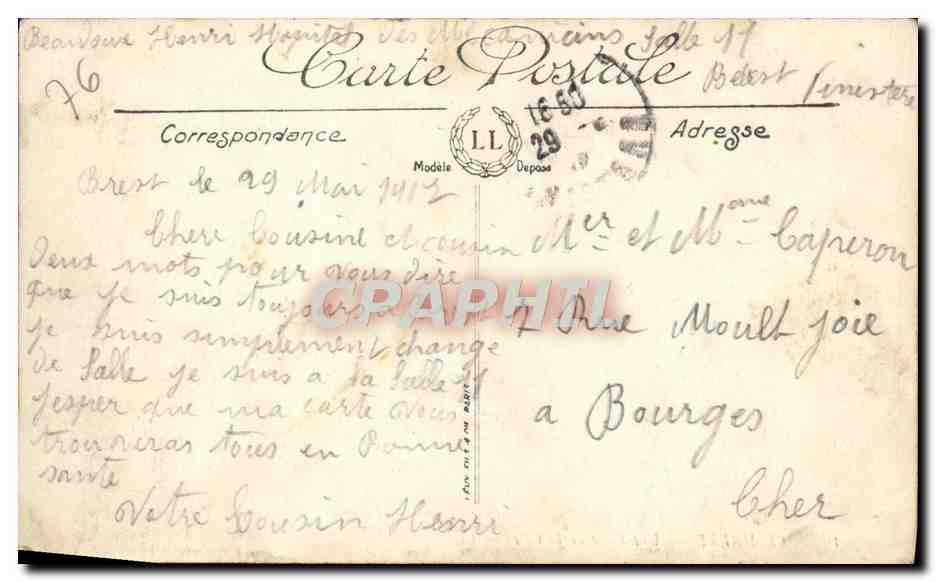 Henri Hopital des Salle 11
Brest Finistere
76
Carte Postale
Correspondance
Adresse
LL
Modèle Déposé
16 50
29
Brest le 29 Mai 1917
Chere Cousine et cousin
Deux mots pour vous dire
que je suis toujours a
je suis simplement change
de Salle je suis a la Salle 11
jesper que ma carte vous
trouveras tous en bonne
sante
Votre Cousin Henri
Mer et Mame Caperon
7 Rue Moult joie
a Bourges
Cher
LEVY FILS & Cie PARIS
CPAPHIL